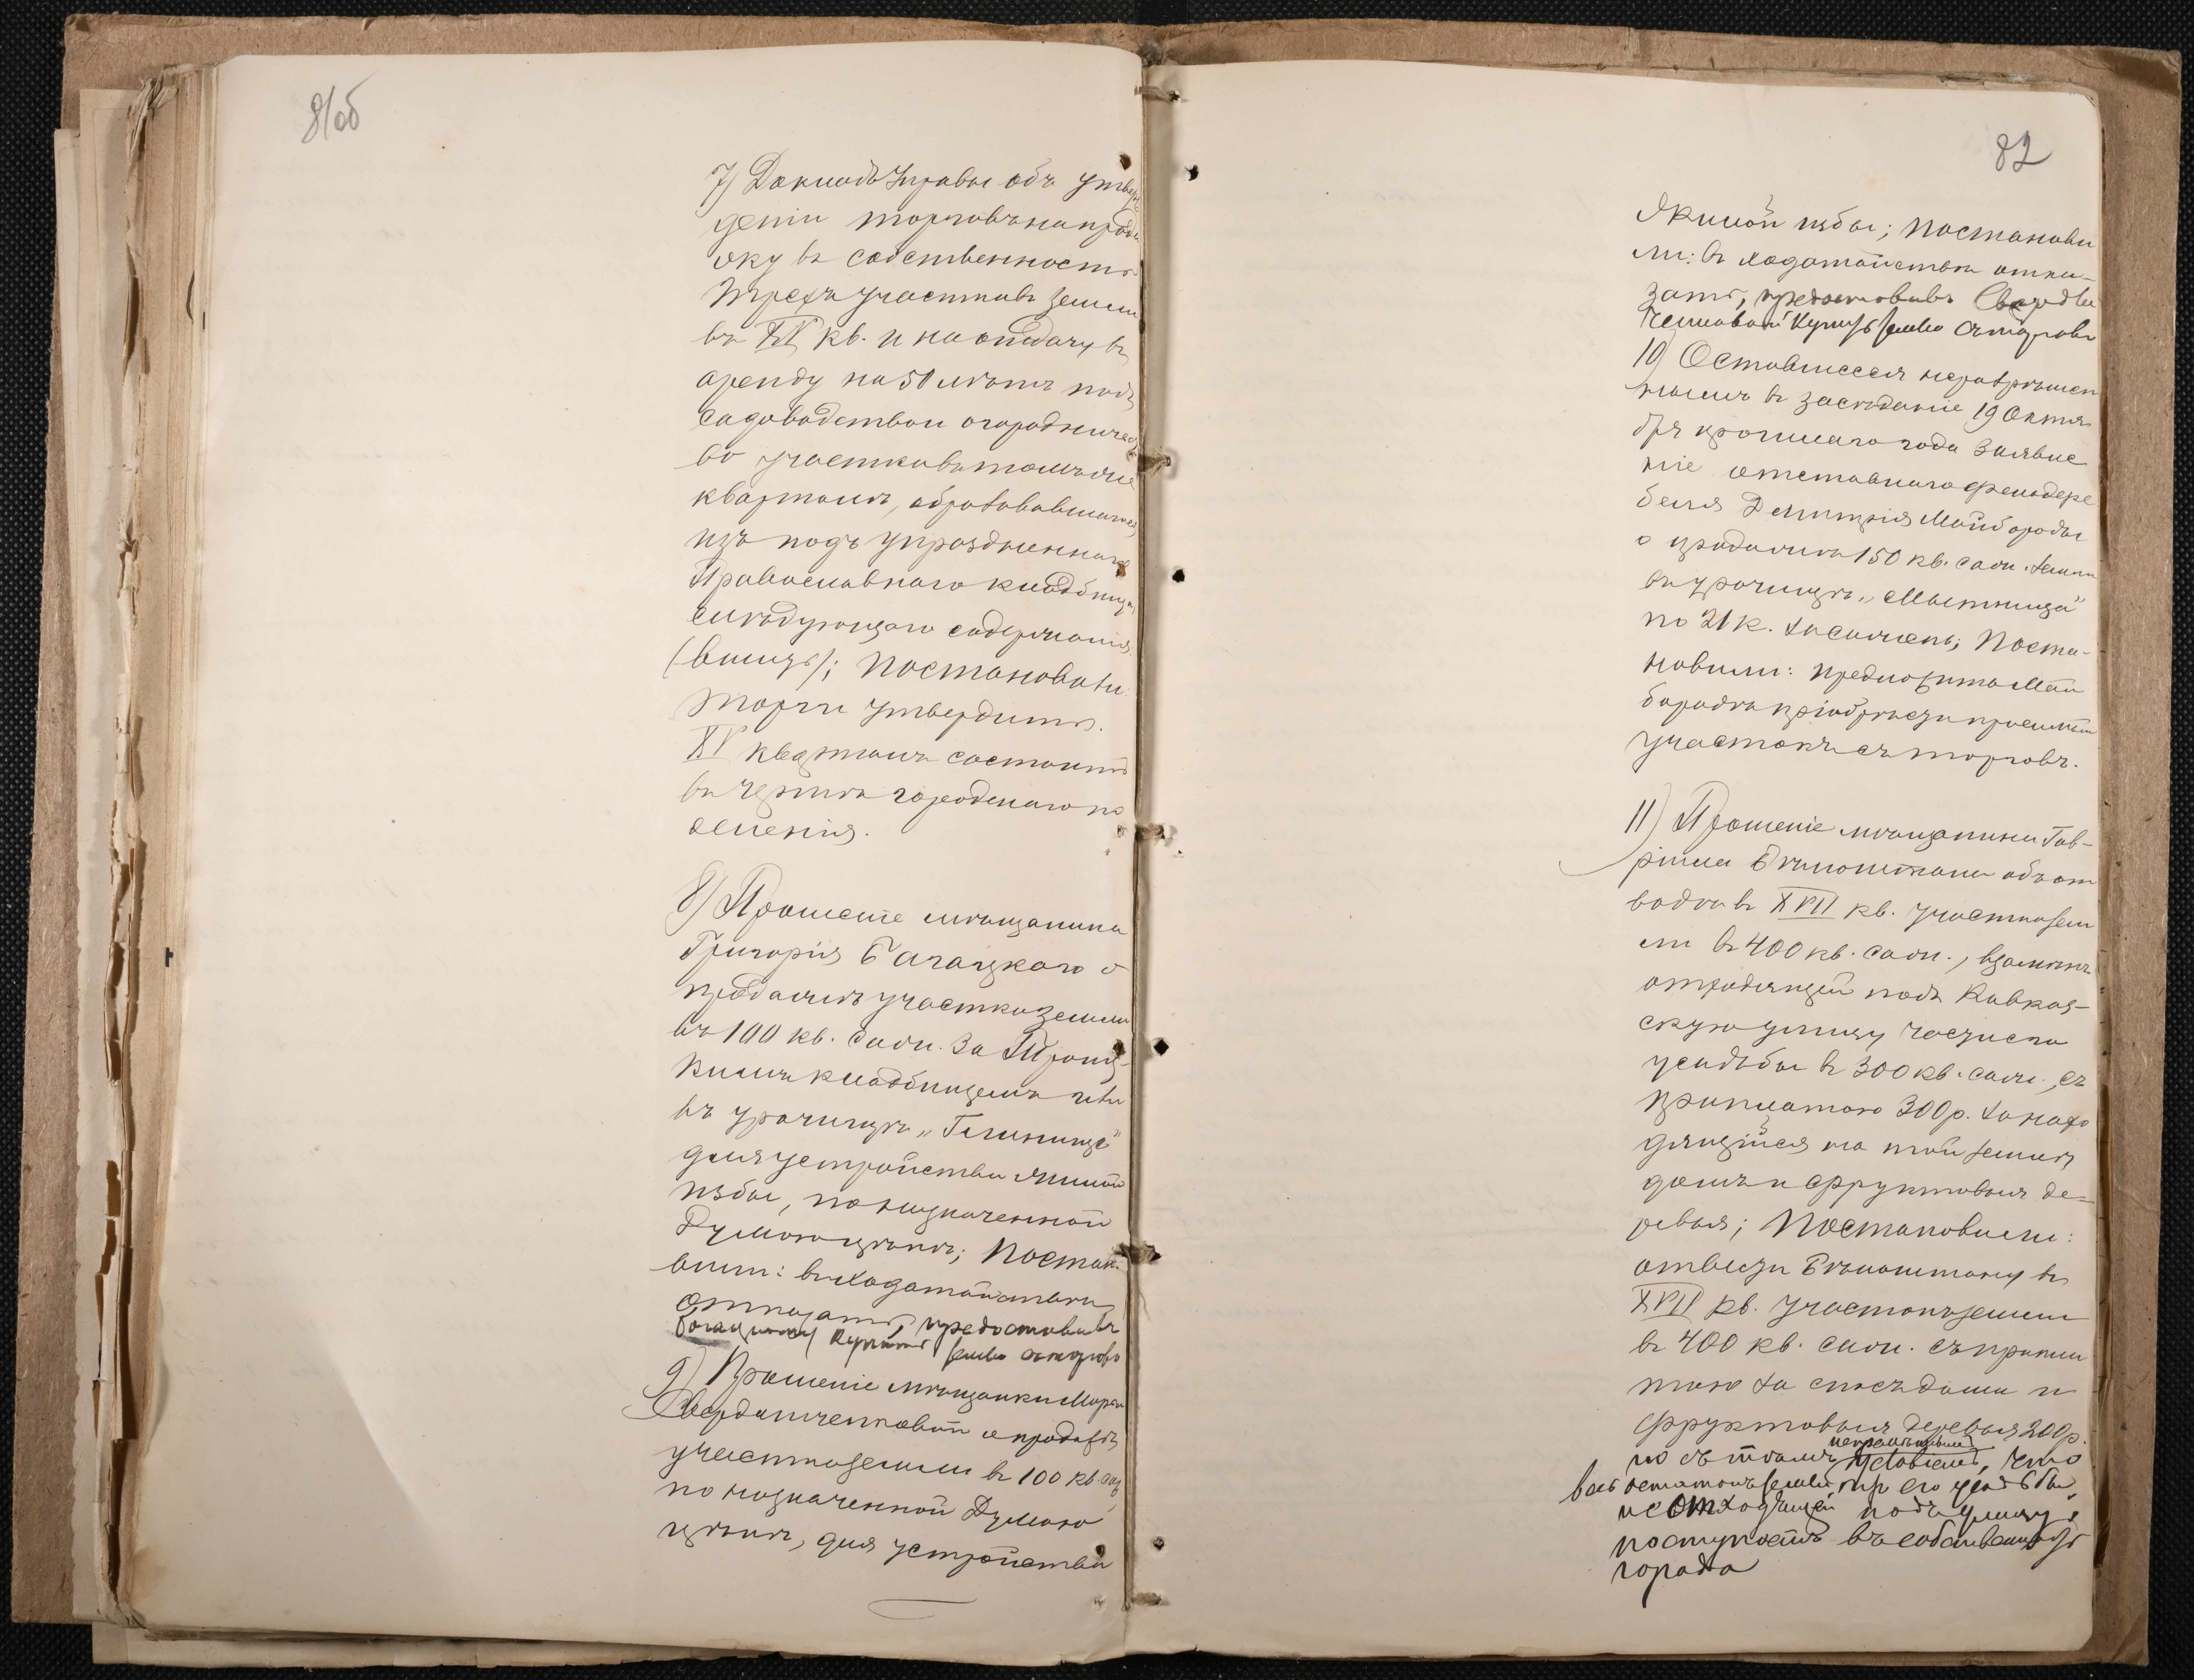 81об
7) Докладъ Управы объ утверж
деніи торговъ на прода
жу въ собственность
трехъ участковъ земли
въ XV кв. и на отдачу въ
аренду на 50 лѣтъ подъ
садоводство и огородничес
во участка въ томъ же
кварталѣ, образовавшагося
изъ подъ упраздненнаго
Православнаго кладбища
слѣдующаго содержанія
(впишу); Постановили:
Торги утвердить.
XV кварталъ состоитъ
въ чертѣ городского по
селенія.
8) Прошеніе мѣщанина
Григорія Багацкаго о
продажѣ участка земли
въ 100 кв. саж. за Троиц-
кимъ кладбищемъ или
въ урочищѣ „Глинище"
для устройства жилой
избы, по назначенной
Думою цѣнѣ; Постано
вили: въ ходатайствѣ
отказать, предоставивъ
Богацкому купить землю съ торговъ
9) Прошеніе мѣщанки Маріи
Свердличенковой о продажѣ
участка земли въ 100 кв. саж,
по назначенной Думою
цѣнѣ, для устройства
82
жилой избы; Постанови
ли: въ ходатайствѣ отка-
зать, предоставивъ Свердли
ченковой купить землю съ торговъ
10) Оставшееся неразрѣшен
нымъ въ засѣданіе 19 Октя
бря прошлаго года заявле
ніе отставного фельдфе
беля Дмитрія Майбороды
о продажѣ 150 кв. саж. земли
въ урочищѣ „Мытница"
по 21 к. за сажень; Поста-
новили: предложить Май
бородѣ пріобрѣсти просимый
участокъ съ торговъ.
11) Прошеніе мѣщанина Гав-
ріила Бѣлоштана объ от
водѣ въ XVII кв. участка зем
ли въ 400 кв. саж., взамѣнъ
отходящей подъ Кавказ-
скую улицу части его
усадьбы въ 300 кв. саж., съ
приплатою 300 р. за нахо
дящійся на той землѣ
домъ и фруктовыя де-
ревья; Постановили:
отвести Бѣлоштану въ
XVII кв. участокъ земли
въ 400 кв. саж. съ припла
тою за сносъ дома и
фруктовыя деревья 200 р.
но съ тѣмъ непремѣннымъ условіемъ, что
весь остатокъ земли при его усадьбѣ,
не отходящей подъ улицу,
поступаетъ въ собственность
города